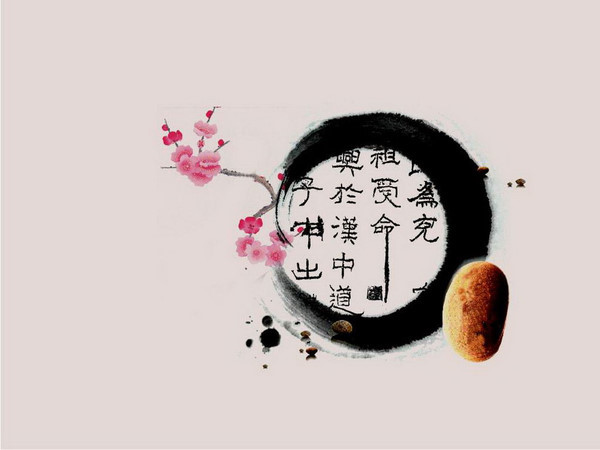 為充
祖受命
興於漢中道
子午出